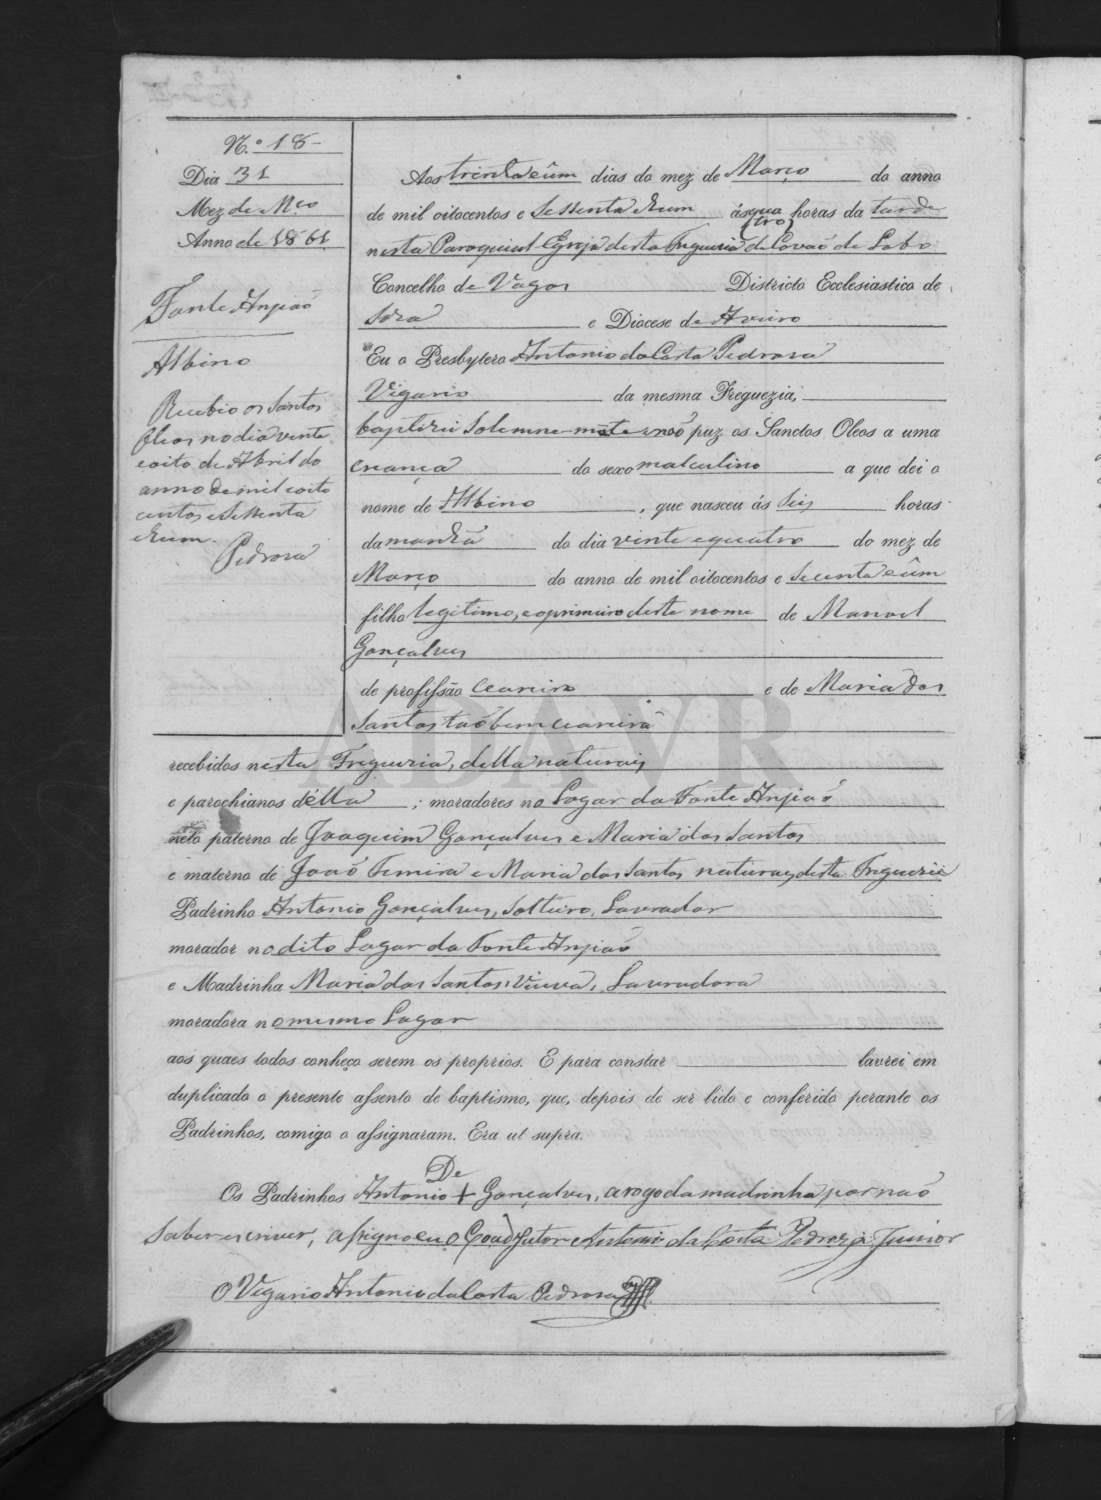 N.º 18-
Dia 31
Mez de M.ço
Anno de 1861
Fonte Anjiaõ
Albino
Recebio os Santos
Oleos no dia vente
e oito de Abril do
anno de mil e oito
centos e sessenta
e hum.
Pedrosa
Aos trinta e ûm dias do mez de Março do anno
de mil oitocentos e sessenta e hum ás qua horas da tarde
(tro)
nesta Paroquial Egreja desta Freguezia de Covaõ de Lobo
Concelho de Vagos Districto Ecclesiastico de
Soza e Diocese de Aveiro
Eu o Presbytero Antonio da Costa Pedrosa
Vigario da mesma Freguezia,
baptizei Solemne-mete e naõ puz os Sanctos Oleos a uma
creança do sexo masculino a que dei o
nome de Albino, que nasceu ás seis horas
da manhã do dia vinte e quatro do mez de
Março do anno de mil oitocentos e secenta e ûm
filho legitimo, e o primeiro deste nome de Manoel
Gonçalves
de profissão Ceareiro e de Maria dos
Santos taõbem ceareira
ADAVR
recebidos nesta Freguezia, della naturais
e parochianos délla; moradores no Logar da Fonte Anjiaõ
neto paterno de Joaquim Gonçalves e Maria dos Santos
e materno de Joaõ Ferreira e Maria dos Santos naturaes desta Freguezia
Padrinho Antonio Gonçalves, Solteiro, Lavrador
morador no dito Lugar da Fonte Anjiaõ
e Madrinha Maria dos Santos, Viuva, Lavradora
moradora no mesmo Lugar
aos quaes todos conheço serem os proprios. E para constar lavrei em
duplicado o presente assento de baptismo, que, depois de ser lido e conferido perante os
Padrinhos, comigo o assignaram. Era ut supra.
De
Os Padrinhos Antonio + Gonçalves, a rogo da madrinha por naõ
saber escriver, assigno eu o Coadjutor Antonio da Costa Pedroza Junior
O Vigario Antonio da Costa Pedrosa